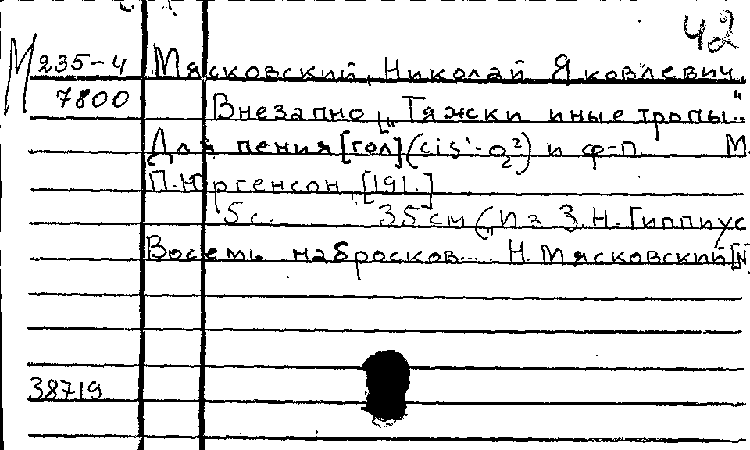 42
М 235-4 Мясковский, Николай Яковлевич.
7800 Внезапно ["Тяжски иные тропы".
Для пения [гол] (cis¹-g²) и ф-п М.
П. Юргенсон, [191.]
5 с. 35 см (Из З.Н. Гиппиус
Восемь набросков Н. Мясковский [N
38719